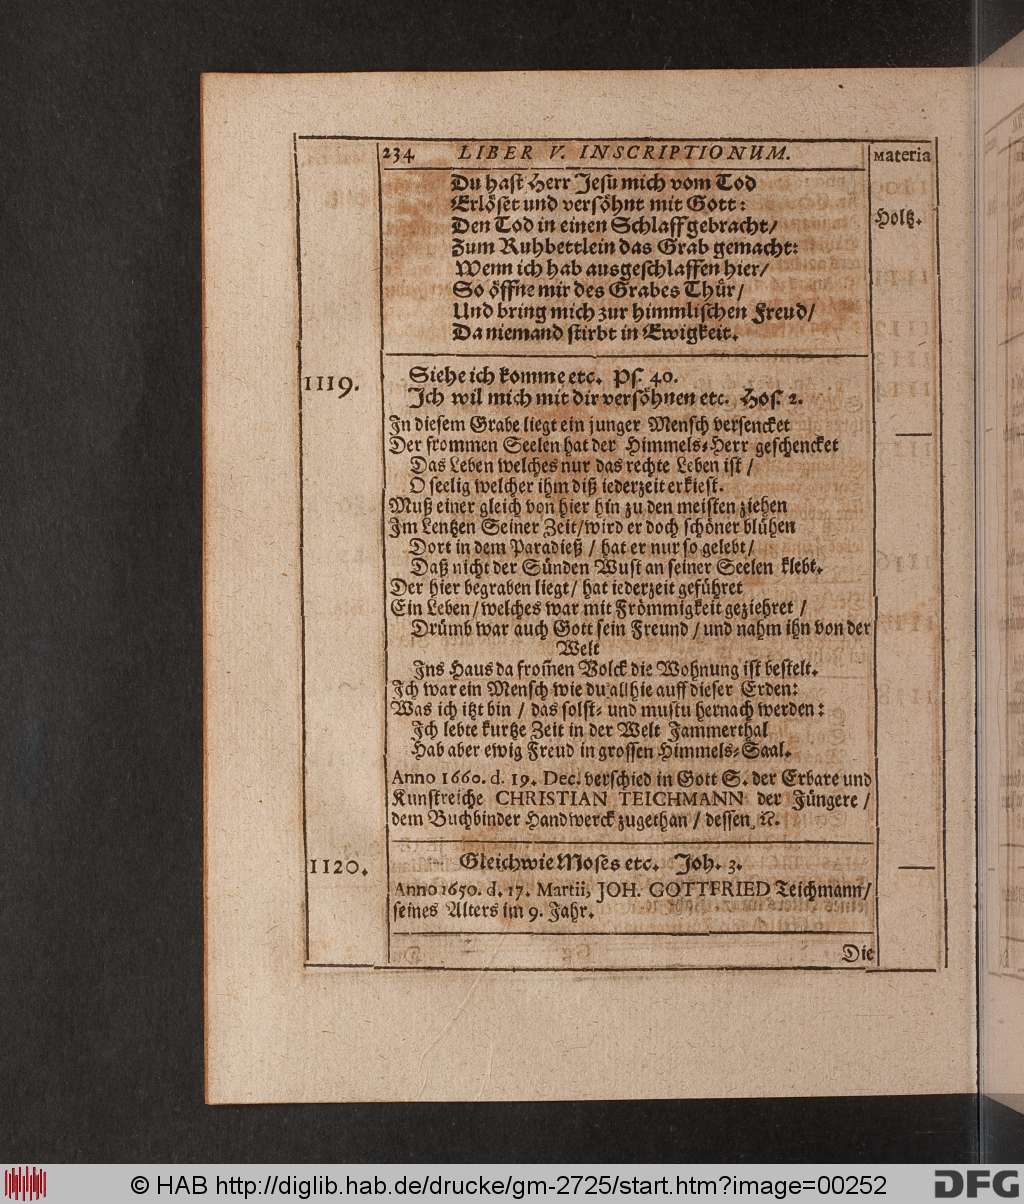 234 LIBER V. INSCRIPTIONUM. Materia
Du hast Herr Jesu mich vom Tod
Erlöset und versöhnt mit Gott:
Den Tod in einen Schlaff gebracht/
Holtz.
Zum Ruhbettlein das Grab gemacht:
Wenn ich hab ausgeschlaffen hier/
So öffne mir des Grabes Thür/
Und bring mich zur himmlischen Freud/
Da niemand stirbt in Ewigkeit.
1119. Siehe ich komme etc. Ps. 40.
Ich wil mich mit dir versöhnen etc. Hos. 2.
In diesem Grabe liegt ein junger Mensch versencket
Der frommen Seelen hat der Himmels-Herr geschencket
Das Leben welches nur das rechte Leben ist /
O seelig welcher ihm diß iederzeit erkiest.
Muß einer gleich von hier hin zu den meisten ziehen
Im Lentzen Seiner Zeit/wird er doch schöner blühen
Dort in dem Paradieß / hat er nur so gelebt/
Daß nicht der Sünden Wust an seiner Seelen klebt.
Der hier begraben liegt/ hat iederzeit geführet
Ein Leben/welches war mit Frömmigkeit geziehret /
Drümb war auch Gott sein Freund /und nahm ihn von der
Welt
Ins Haus da from̃en Volck die Wohnung ist bestelt.
Ich war ein Mensch wie du allhie auff dieser Erden:
Was ich itzt bin / das solst- und mustu hernach werden:
Ich lebte kurtze Zeit in der Welt Jammerthal
Hab aber ewig Freud in grossen Himmels-Saal.
Anno 1660. d. 19. Dec. verschied in Gott S. der Erbare und
Kunstreiche CHRISTIAN TEICHMANN der Jüngere /
dem Buchbinder Handwerck zugethan / dessen ꝛc.
1120. Gleich wie Moses etc. Joh. 3.
Anno 1650. d. 17. Martii, JOH. GOTTFRIED Teichmann/
seines Alters im 9. Jahr.
Die
© HAB http://diglib.hab.de/drucke/gm-2725/start.htm?image=00252
DFG